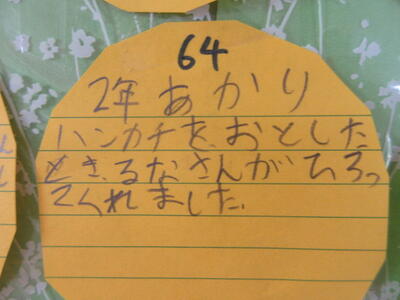 64
2年あかり
ハンカチをおとした
とき、るなさんがひろっ
てくれました。